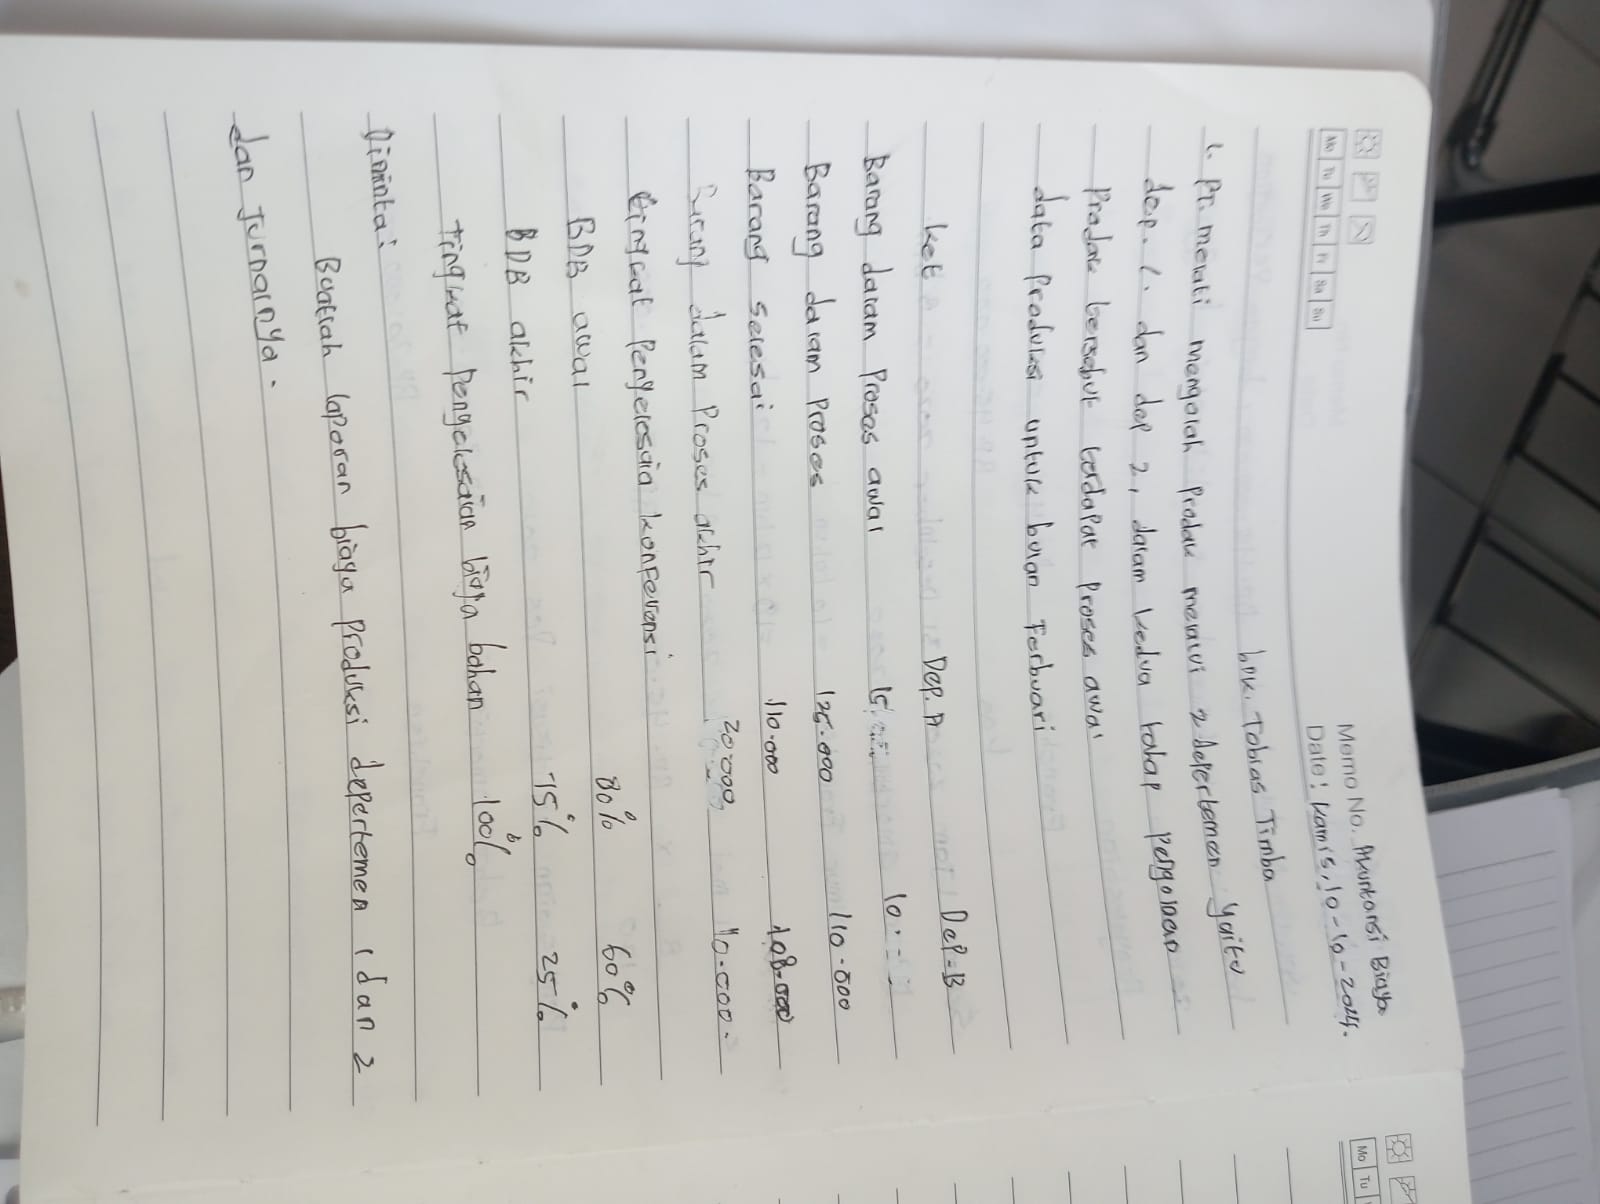 Memo No. Akuntansi Biaya
Mo Tu We Th Fr Sa Su
Date : kamis, 10-10-2024.
bpk. Tobias Timba
1. Pt. merati mengolah Produk merarui 2 depertemen Yaitu
dep. 1. dan dep 2, dalam kedua tahap pengolaan
Produk bersebut terdapat Proses awal
data Produksi untuk bulan Ferbuari
ket Dep. A Dep. B
Barang daram Proses awal 15. 10.
Barang daram Proses 125.000 110.000
Barang seresai 110.000 108.000
Barang dalam Proses akhir 20.000 10.000.
tingkat Pengelesaia konferensi
BDB awal 80% 60%
BDB akhir 75% 25%
tingkat Pengelesaian biaya bahan 100%
Diminta:
Buatrah laporan biaya Produksi depertemen 1 dan 2
dan Jurnarnya.
Mo Tu